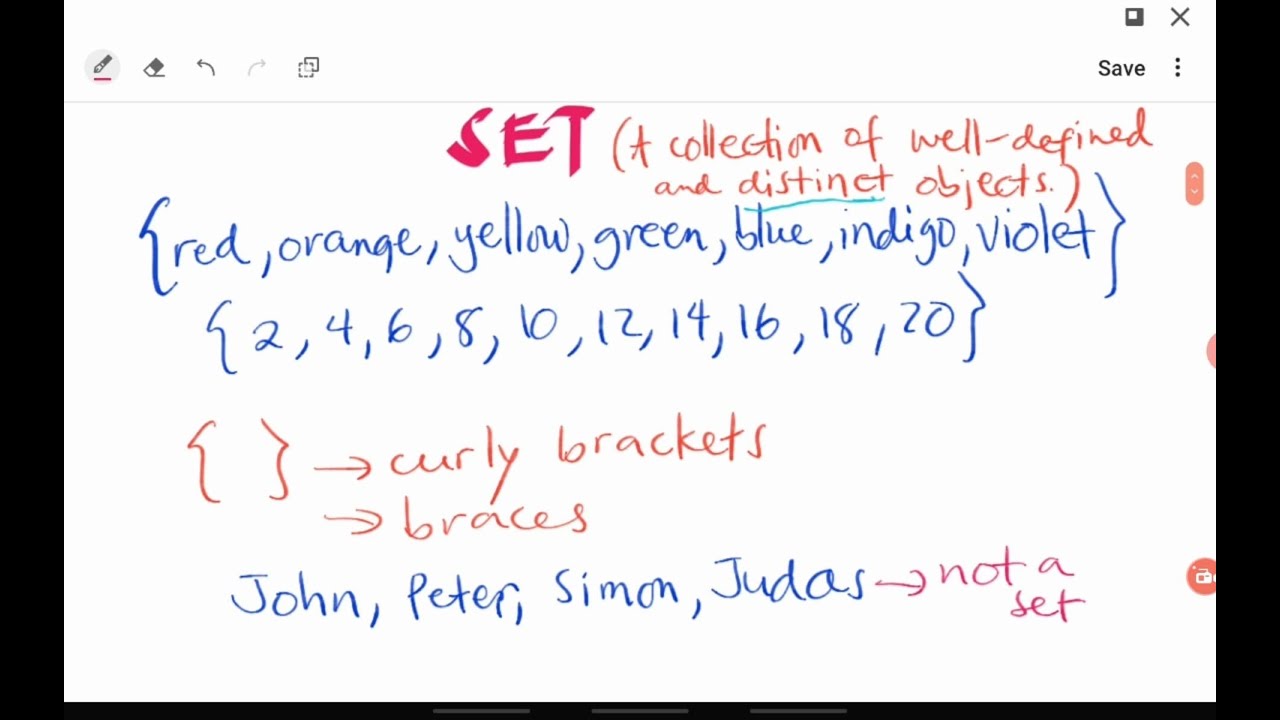 Save
SET (A collection of well-defined
and distinct objects.)
{red, orange, yellow, green, blue, indigo, violet}
{2, 4, 6, 8, 10, 12, 14, 16, 18, 20}
{ } → curly brackets
→ braces
John, Peter, Simon, Judas → not a
set